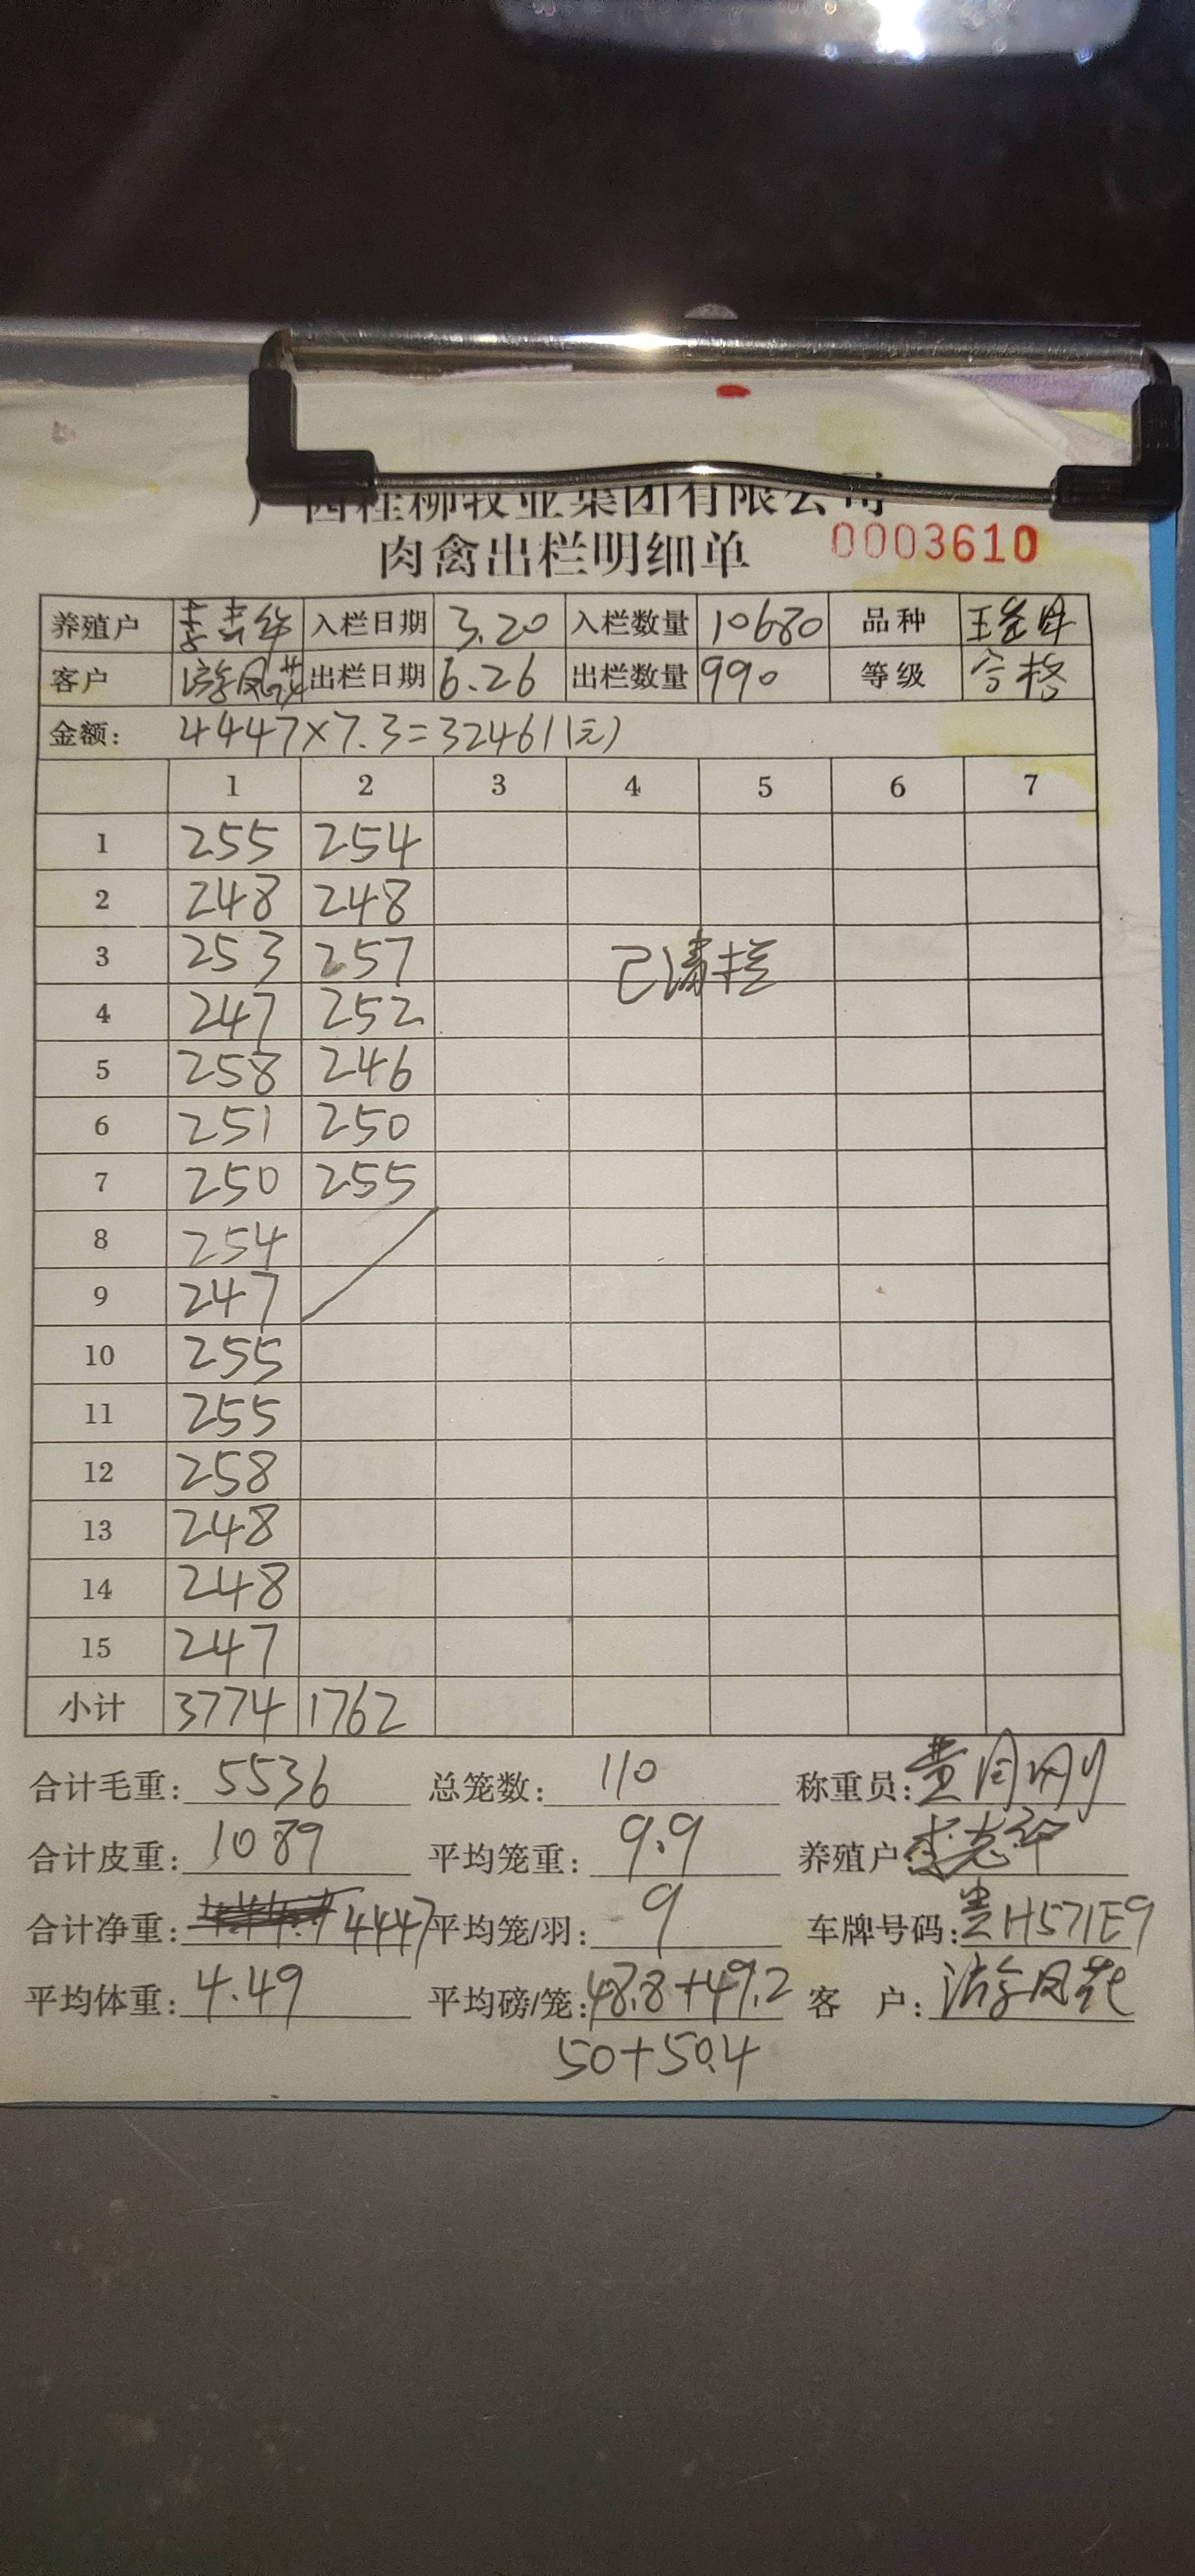 广西桂柳牧业集团有限公司
肉禽出栏明细单 0003610
养殖户 李志华 入栏日期 3.20 入栏数量 10680 品种
客户 游凤花 出栏日期 6.26 出栏数量 990 等级 合格
金额: 4447×7.3=32461(元)
1 2 3 4 5 6 7
1 255 254
2 248 248
3 253 257 已清栏
4 247 252
5 258 246
6 251 250
7 250 255
8 254
9 247
10 255
11 255
12 258
13 248
14 248
15 247
小计 3774 1762
合计毛重: 5536 总笼数: 110 称重员:
合计皮重: 1089 平均笼重: 9.9 养殖户 李志华
合计净重: 4447 平均笼/羽: 9 车牌号码: 贵H571E9
平均体重: 4.49 平均磅/笼: 48.8+49.2 客 户: 游凤花
50+50.4